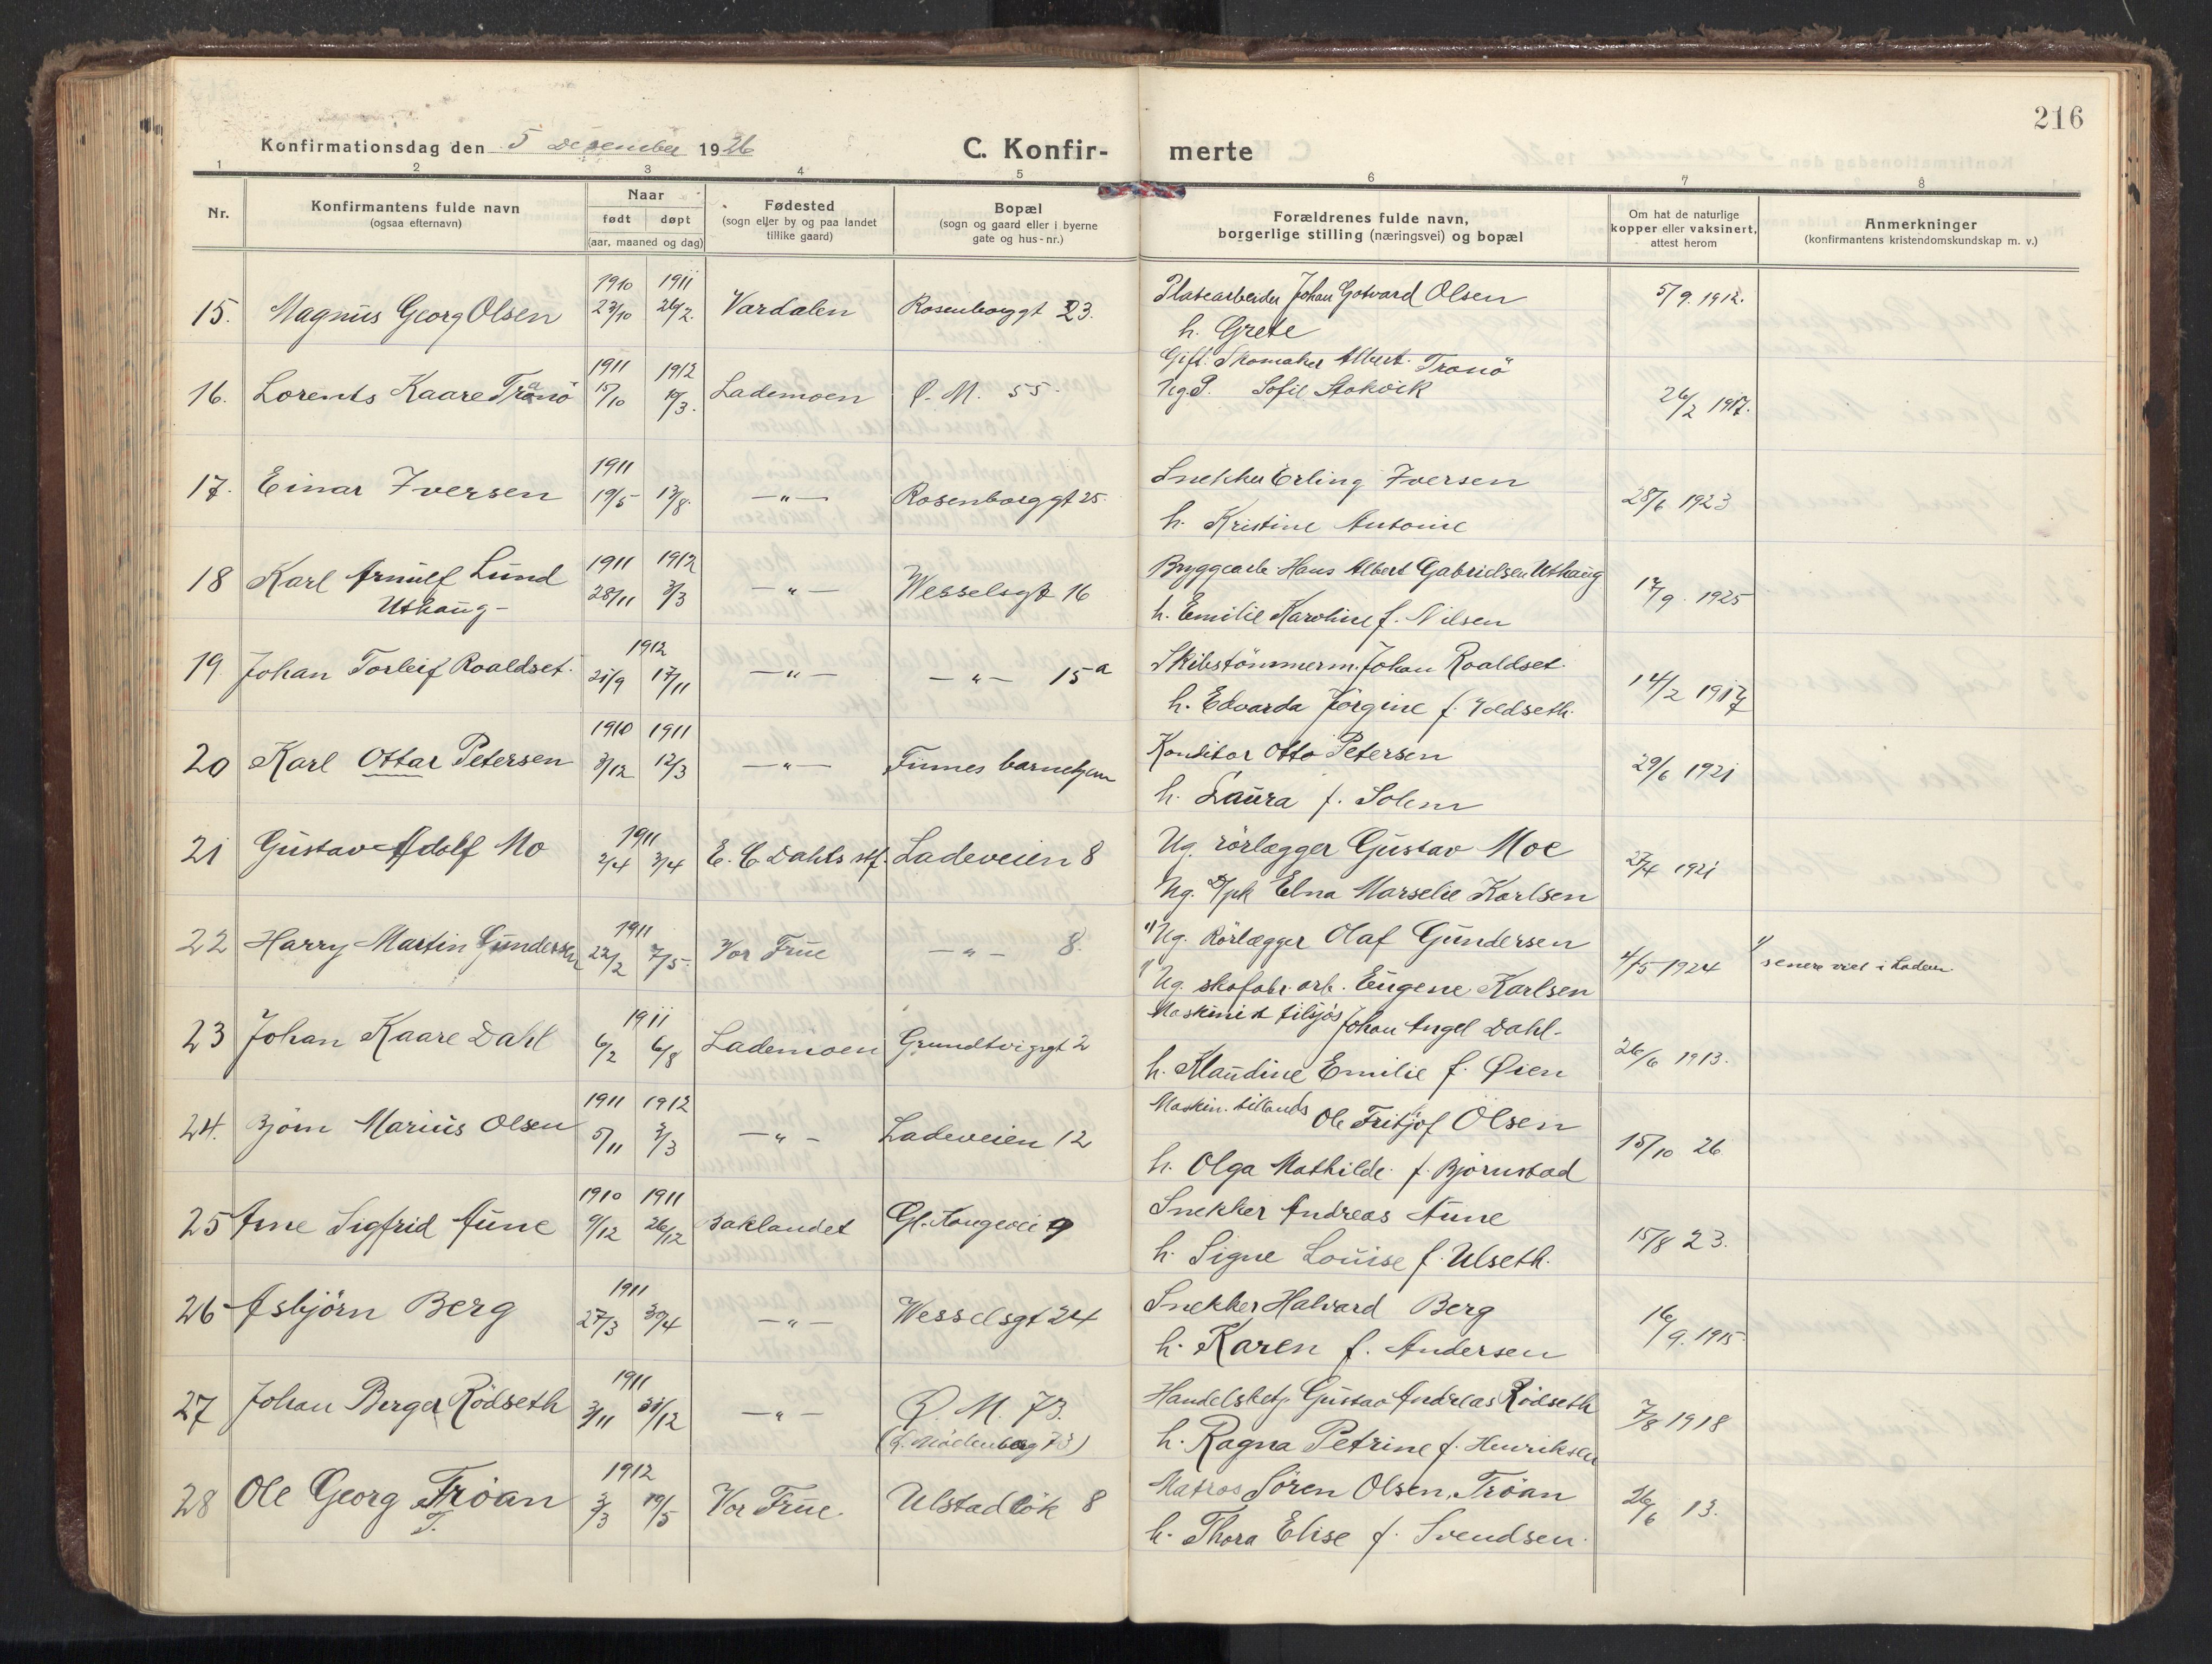 216
Konfirmationsdag den 5 December 1926
C. Konfir-
merte
1 2 3 4 5 6 7 8
Nr.
Konfirmantens fulde navn
(ogsaa efternavn)
Naar
født døpt
(aar, maaned og dag)
Fødested
(sogn eller by og paa landet
tillike gaard)
Bopæl
(sogn og gaard eller i byerne
gate og hus-nr.)
Forældrenes fulde navn,
borgerlige stilling (næringsvei) og bopæl
Om hat de naturlige
kopper eller vaksinert,
attest herom
Anmerkninger
(konfirmantens kristendomskundskap m. v.)
1910 1911
15. Magnus Georg Olsen 23/10 26/2. Vardalen Rosenborggt 23. Platearbeider Johan Gotvard Olsen 5/9. 1912.
h. Grete
1911 1912
Gift. Skomaker Albert Tronö
16. Lorents Kaare Tranö 15/10 Lademoen Ø. M. 55. Ug.P. Sofie Stokvik 26/2 1917.
1911
17. Einar Iversen 19/5 13/8. —"— Rosenborggt 25. Snekker Erling Iversen 28/6 1923
h. Kristine Antonie
1911 1912
18 Karl Arnulf Lund 28/11 3/3 —"— Wesselsgt 16 Bryggearb. Hans Albert Gabrielsen Uthaug 17/9. 1925
Uthaug—
h. Emilie Karoline f. Nilsen
1912
19 Johan Torleif Roaldset. 21/9 17/11 —"— —"— 15a Skibstömmerm. Johan Roaldset. 14/2 1917
h. Edvarda Jörgine f. Voldseth.
1910 1911
20 Karl Ottar Petersen 3/12 12/3 —"— Finnes barnehjem Konditor Otto Petersen 29/6 1921
h. Laura f. Solem
1911
21 Gustav Adolf Mo 2/4 3/4 E. C Dahls stf. Ladeveien 8 Ug. rörlægger Gustav Moe 27/4 1921
Ug. Elna Marselie Karlsen
1911
22 Harry Martin Gundersen 22/2 7/5. Vor Frue —"— 8. 1) Ug. Rörlægger Olaf Gundersen 4/5 1924 1) senere viet i Ladem.
1) Ug. skofabr. arb. Eugene Karlsen
1911
23 Johan Kaare Dahl 6/2 6/8 Lademoen Grundtvigsgt 2 Maskinist tilsjös Johan Angel Dahl. 26/6 1913.
h. Klaudine Emilie f. Øien
1911 1912
24. Björn Marius Olsen 5/11 3/3 —"— Ladeveien 12 Maskin. tillands Ole Fritjof Olsen 15/10 26
h. Olga Mathilde f. Björnstad
1910 1911
25 Arne Sigfrid Aune 9/12 26/12 Baklandet Gl. Kongevei 9 Snekker Andreas Aune 15/8 23.
h. Signe Louise f. Ulseth.
1911
26 Asbjörn Berg 27/3 30/4 —"— Wesselsgt 24 Snekker Halvard Berg 16/9. 1915.
h. Karen f. Andersen
1911
27 Johan Berger Rödseth 3/11 31/12 —"— Ø. M. 73. Handelsbetj. Gustav Andreas Rödseth 7/8 1918
(Ö. Möllenberg 73)
h. Ragna Petrine f. Henriksen
1912
28 Ole Georg Tröan 3/3 19/5 Vor Frue. Ulstadlök 8 Matros Sören Olsen, Tröan 26/6 13.
T.
h. Thora Elise f. Svendsen.